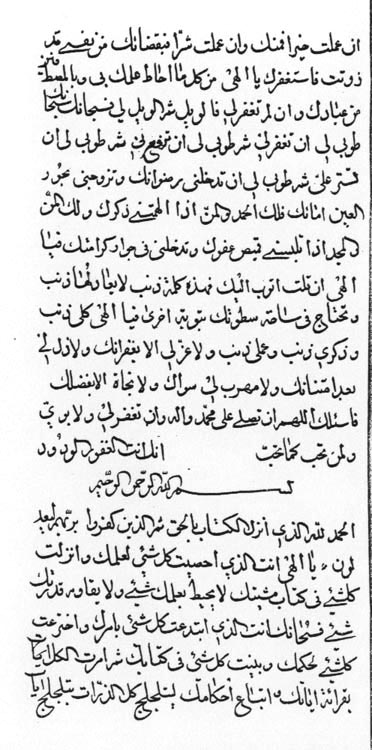 ان عملت خيرا فمنك وان عملت شرا فبقضائك من نفسي قد
ذوتت فاستغفرك يا الهي من كل ما احاط علمك بي وبالمستغفرين
من عبادك وان لم تغفر لي فالويل ثم الويل لي فسبحانك سبحانك
طوبى لي ان تغفر لي ثم طوبى لي ان ترفع ثم طوبى لي ان
تستر علي ثم طوبى لي ان تدخلني برضوانك وتزوجني بحور
العين امائك فلك الحمد والمن اذا الهمتني ذكرك ولك المن
والمجد اذا تلبسني قميص عفوك وتدخلني في جوار كرامتك فيا
الهي ان قلت اتوب اليك فهذه كلمة ذنب لا يعادلها ذنب
وتحتاج في ساحة سطوتك بتوبة اخرى فيا الهي كلي ذنب
وذكري ذنب وعملي ذنب ولا عز لي الا بغفرانك ولا ذل لي
بعد امتنانك ولا مهرب لي سواك ولا نجاة الا بفضلك
فاسئلك اللهم ان تصلي على محمد واله وان تغفر لي ولابوي
ولمن تحب كما تحب انك انت الغفور الودود
بسم الله الرحمن الرحيم
الحمد لله الذي انزل الكتاب بالحق ثم الذين كفروا بربهم يعد
لون يا الهي انت الذي احصيت كل شيء لعلمك وانزلت
كل شيء في كتاب مشيتك لا يحيط بعلمك شيء ولا يقاوم قدرتك
شيء فسبحانك انت الذي ابتدعت كل شيء بامرك واخترعت
كل شيء لحكمك وبينت كل شيء في كتابك
احكامك كل الذرات